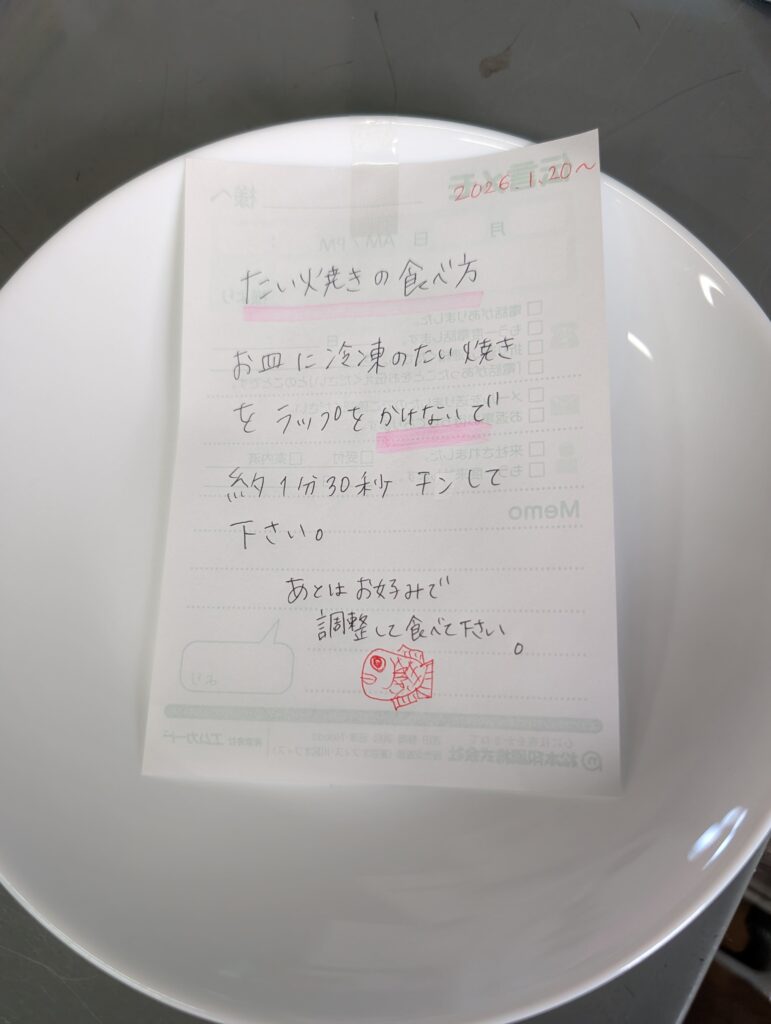 2026.1.20～
たい焼きの食べ方
お皿に冷凍のたい焼き
を ラップを かけないで
約1分30秒 チンして
下さい。
あとはお好みで
調整して食べて下さい。